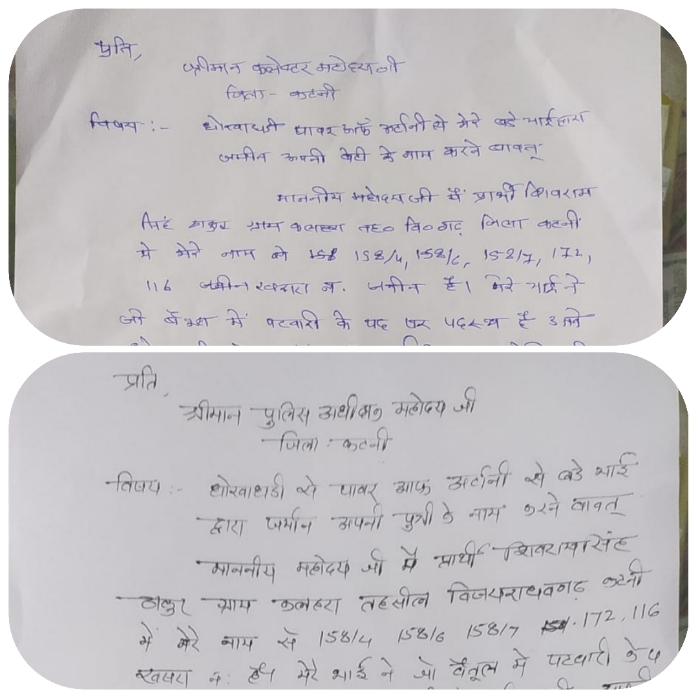 प्रति,
श्रीमान कलेक्टर महोदय जी
जिला - कटनी
विषय :- धोखाधड़ी पावर आफ अर्टानी से मेरे बडे भाई द्वारा
जमीन अपनी बेटी के नाम करने बावत्
माननीय महोदय जी मैं प्रार्थी शिवराम
सिंह ठाकुर ग्राम कलहरा तह० वि०गढ़ जिला कटनी
मे मेरे नाम से 158/4, 158/6, 158/7, 172,
116 जमीन खसरा न. जमीन है। मेरे भाई ने
जो बैतूल में पटवारी के पद पर पदस्थ है उसने
प्रति,
श्रीमान पुलिस अधीक्षक महोदय जी
जिला - कटनी
विषय :- धोखाधडी से पावर आफ अर्टानी से बडे भाई
द्वारा जमीन अपनी पुत्री के नाम करने बावत्
माननीय महोदय जी मैं प्रार्थी शिवराम सिंह
ठाकुर ग्राम कलहरा तहसील विजयराघवगढ़ कटनी
में मेरे नाम से 158/4 158/6 158/7 172, 116
खसरा न. है। मेरे भाई ने जो बैतूल मे पटवारी के प